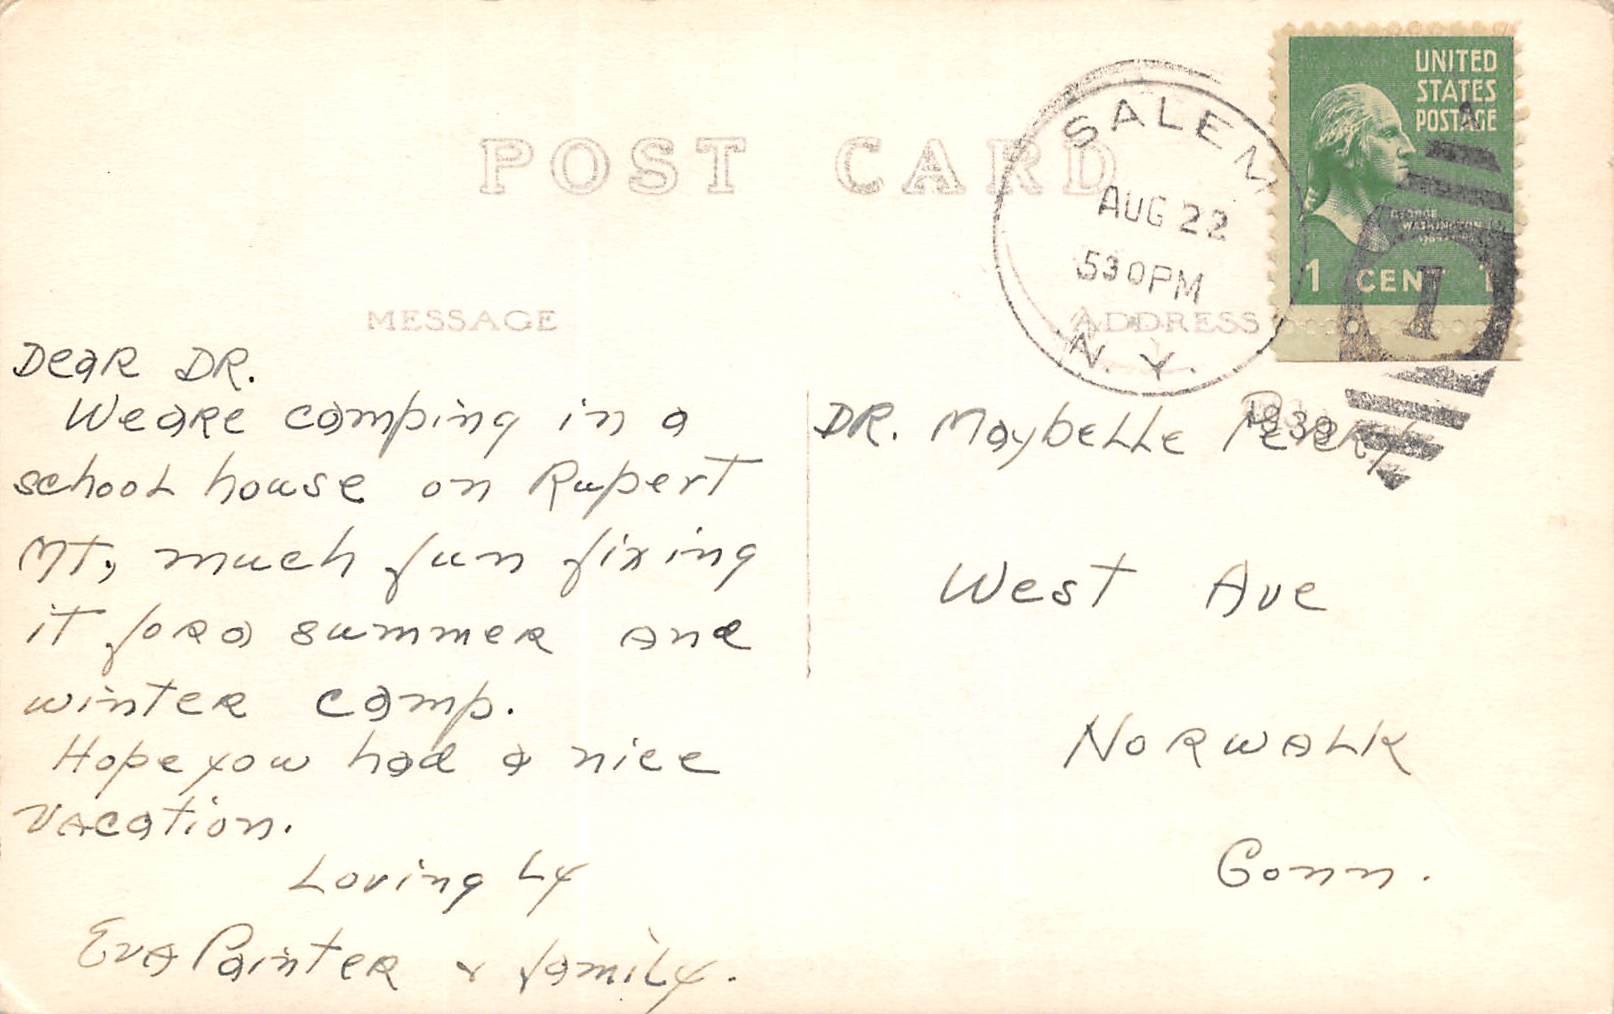 POST CARD
SALEM
AUG 22
530PM
N. Y.
1939
UNITED
STATES
POSTAGE
GEORGE
WASHINGTON
1 CENT 1
1
MESSAGE
Dear DR.
We are camping in a
school house on Rupert
MT, much fun fixing
it for a summer and
winter camp.
Hope you had a nice
vacation.
Loving Ly
Eva Painter & family.
ADDRESS
DR. Maybelle Perry
West Ave
Norwalk
Conn.